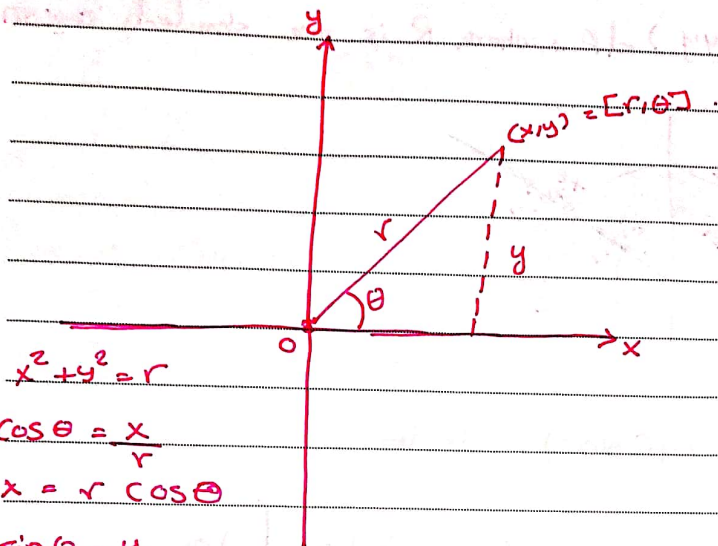 y
(x,y) = [r,θ]
r
y
θ
0
x
x² + y² = r
cos θ = x/r
x = r cos θ